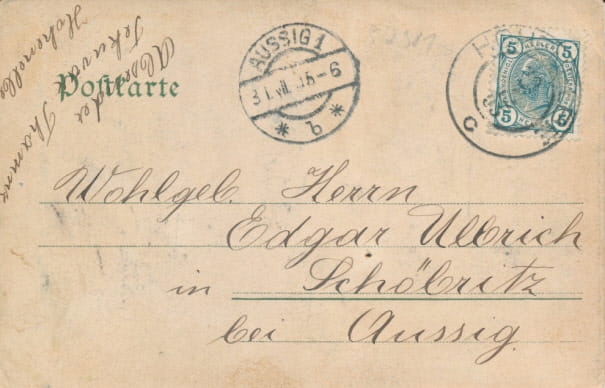 Absender
Hohenelbe
Postkarte
AUSSIG 1
31.VII. 05-6
* b *
H
C
5 HELLER 5
5 5
Wohlgeb. Herrn
Edgar Ulbrich
in Schöbritz
bei Aussig.